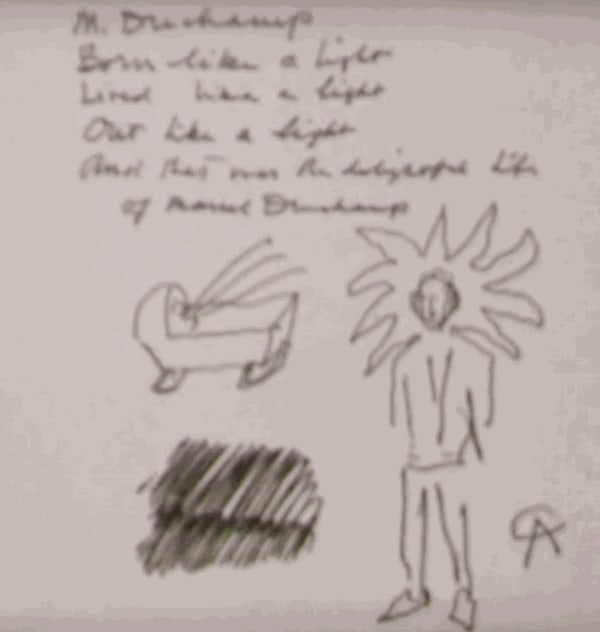 M. Druchamp
Born like a light
Lived like a light
Out like a light
And that was the life
of Marcel Druchamp
CA